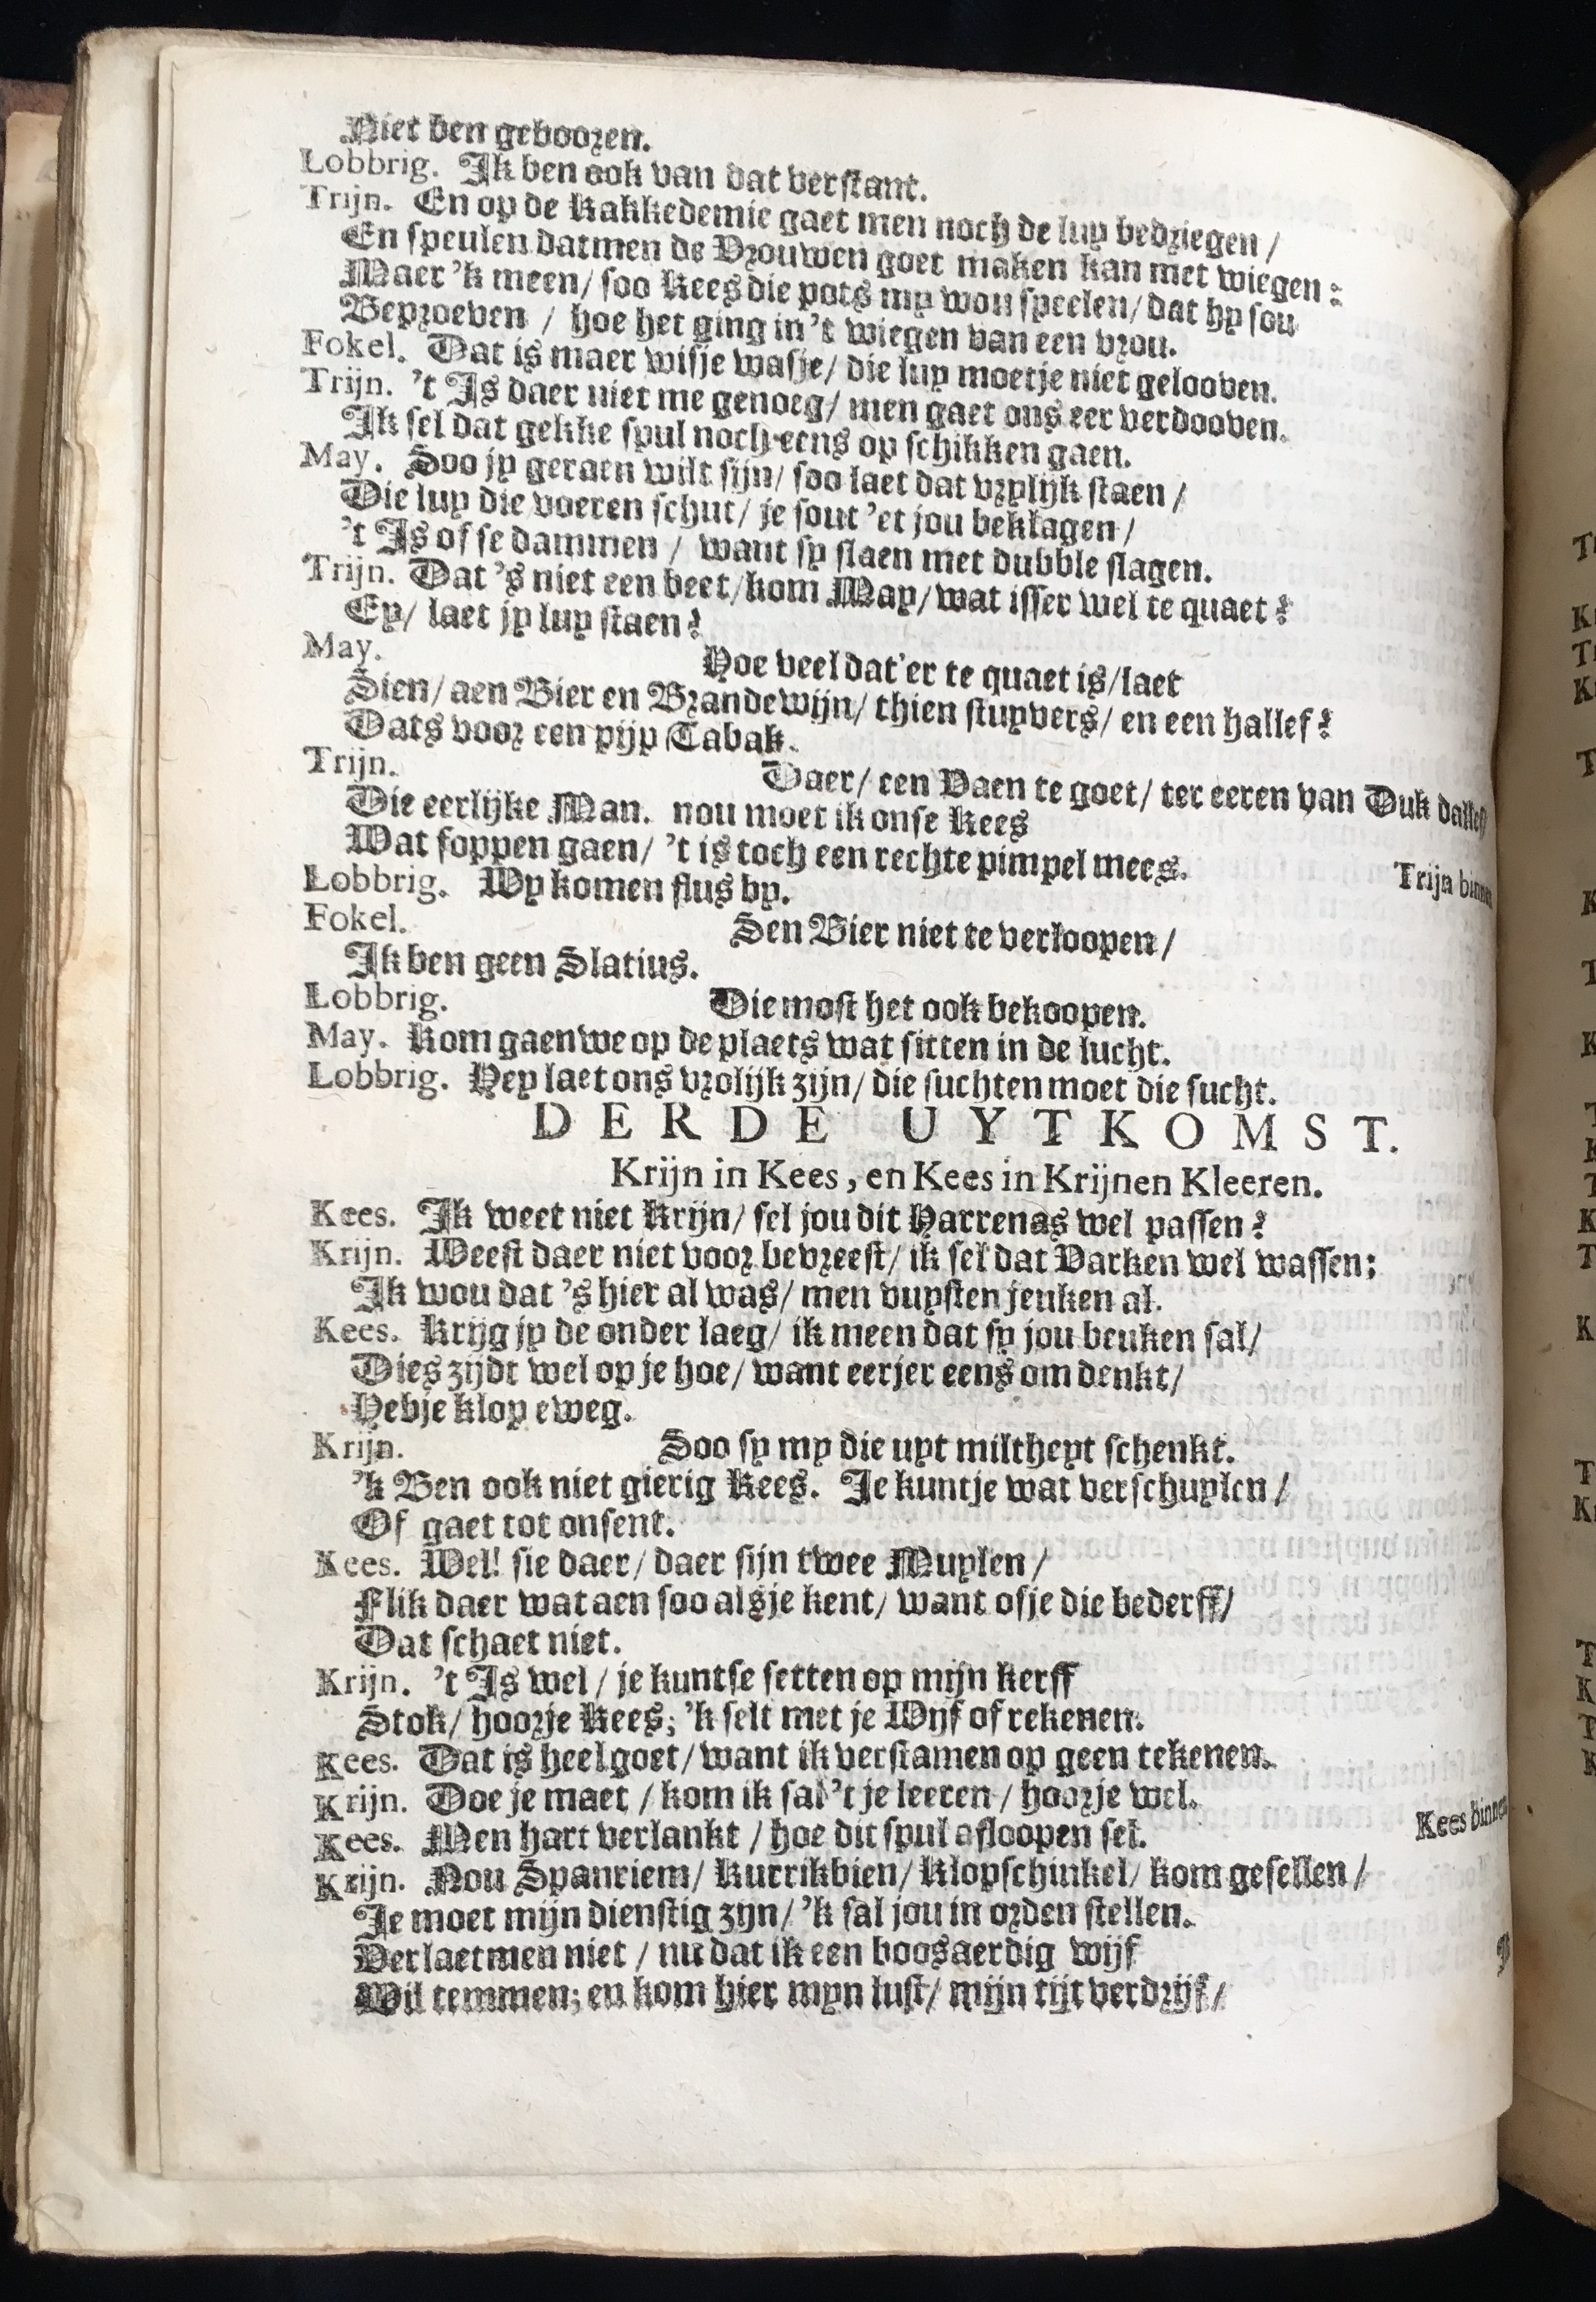 Niet ben gebooren.
Lobbrig. Ik ben ook van dat verstant.
Trijn. En op de Kakkedemie gaet men noch de luy bedriegen /
En speulen datmen de Vrouwen goet maken kan met wiegen:
Maer 'k meen / soo Kees die pots my wou speelen / dat hy sou
Beproeven / hoe het ging in 't wiegen van een vrou.
Fokel. Dat is maer wisje wasje / die luy moetje niet gelooven.
Trijn. 't Is daer niet me genoeg / men gaet ons eer verdooven.
Ik sel dat gekke spul noch eens op schikken gaen.
May. Soo jy geraen wilt sijn / soo laet dat vrylijk staen /
Die luy die voeren schut / je sout 'et jou beklagen /
't Is of se dammen / want sy slaen met dubble slagen.
Trijn. Dat 's niet een beet / kom May / wat isser wel te quaet?
Ey / laet jy luy staen?
May. Hoe veel dat'er te quaet is / laet
Sien / aen Bier en Brandewijn / thien stuyvers / en een hallef?
Dats voor een pijp Tabak.
Trijn. Daer / een Vaen te goet / ter eeren van Duk dallef
Die eerlijke Man. nou moet ik onse Kees
Wat foppen gaen / 't is toch een rechte pimpel mees.
Trijn binnen
Lobbrig. Wy komen flus by.
Fokel. Sen Bier niet te verloopen /
Ik ben geen Slatius.
Lobbrig. Die most het ook bekoopen.
May. Kom gaen we op de plaets wat sitten in de lucht.
Lobbrig. Hey laet ons vrolijk zijn / die suchten moet die sucht.
DERDE UYTKOMST.
Krijn in Kees, en Kees in Krijnen Kleeren.
Kees. Ik weet niet Krijn / sel jou dit Harrenas wel passen?
Krijn. Weest daer niet voor bevreest / ik sel dat Varken wel wassen;
Ik wou dat 's hier al was / men vuysten jenken al.
Kees. Krijg jy de onder laeg / ik meen dat sy jou beuken sal /
Dies zijdt wel op je hoe / want eerjer eens om denkt /
Hebje klop eweg.
Krijn. Soo sy my die uyt miltheyt schenkt.
'k Ben ook niet gierig Kees. Je kuntje wat verschuylen /
Of gaet tot onsent.
Kees. Wel! sie daer / daer sijn twee Muylen /
Flik daer wat aen soo alsje kent / want ofje die bederff /
Dat schaet niet.
Krijn. 't Is wel / je kuntse setten op mijn kerff
Stok / hoorje Kees; 'k selt met je Wijf of rekenen.
Kees. Dat is heel goet / want ik verstamen op geen tekenen.
Krijn. Doe je maer / kom ik sal 't je leeren / hoorje wel.
Kees. Men hart verlankt / hoe dit spul afloopen sel.
Kees binnen
Krijn. Nou Spanriem / Kurrikbien / Klopschinkel / kom gesellen /
Je moet mijn dienstig zijn / 'k sal jou in orden stellen.
Verlaetmen niet / nu dat ik een boosaerdig wijf
Wil temmen; en kom hier myn lust / mijn tijt verdrijf /